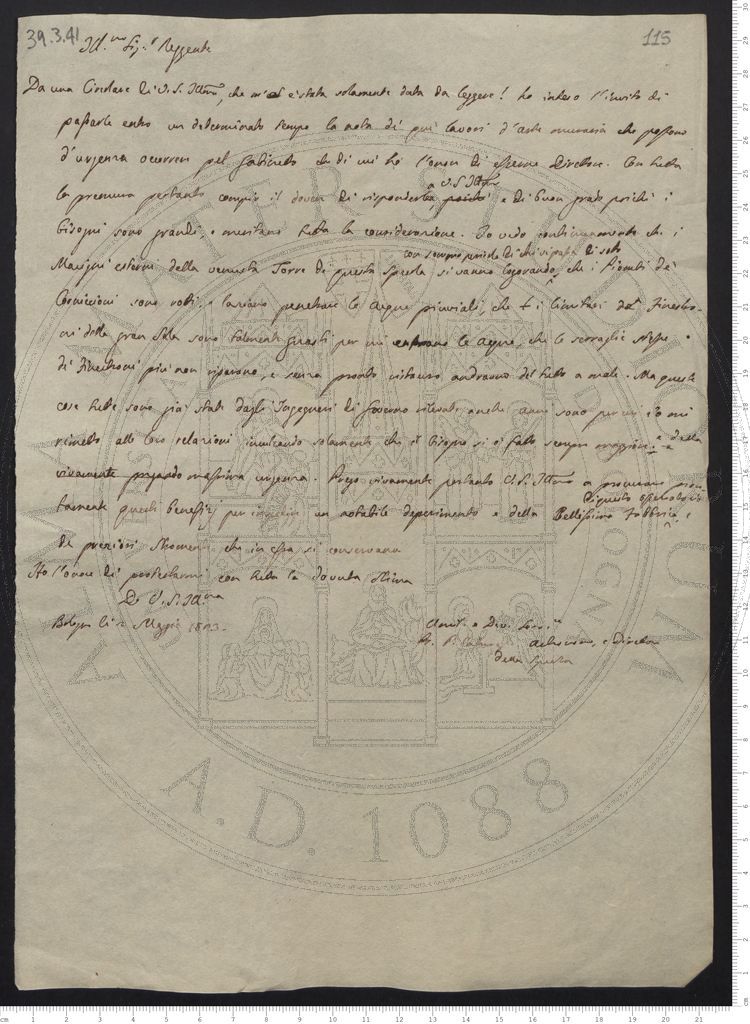 39.3.41
115
Ill.mo Sig.r Reggente
Da una Circolare di V. S. Illma, che m'è stata solamente data da leggere! ho inteso l'invito di
passarle entro un determinato tempo la nota de' più lavori d'arte muraria che possono
d'urgenza ocorrere pel Gabinetto di cui ho l'onore di essere Direttore. Con tutta
la premura pertanto compio il dovere di rispondere
a V. S. Illma
e di buon grado poichè i
bisogni sono grandi, e meritano tutta la considerazione. Io vedo continuamente che i
con sommo pericolo di chi vi passa di sotto
Margini esterni della venusta Torre di questa Specola si vanno logorando, che i
Cornicioni sono rotti, e lasciano penetrare le acque pioviali, che i limitari de' Finestro-
ni della gran Sala sono talmente guasti per cui entrano le acque, che le serraglie stesse
di Finestroni più non riparano, e senza pronto ristauro andranno del tutto a male. Ma queste
cose tutte sono già state dagli Ingegneri di Governo rilevate anche anni sono per cui io mi
rimetto alle loro relazioni inculcando solamente che il bisogno si è fatto sempre maggiore e della
massima urgenza. Prego vivamente pertanto V. S. Illma a procurare pron-
di questo Osservatorio
tamente questi beneffizj per un notabile deperimento e della Bellissima Fabbrica, e
de' preziosi Stromenti che in essa si conservano
Ho l'onore di protestarmi con tutta la dovuta Stima
Di V. S. Ill.ma
Bologna li Maggio
Umil.o e Div. Serv.re
Astronomo, e Direttore
della Specola
ALMA MATER STUDIORUM
A.D. 1088